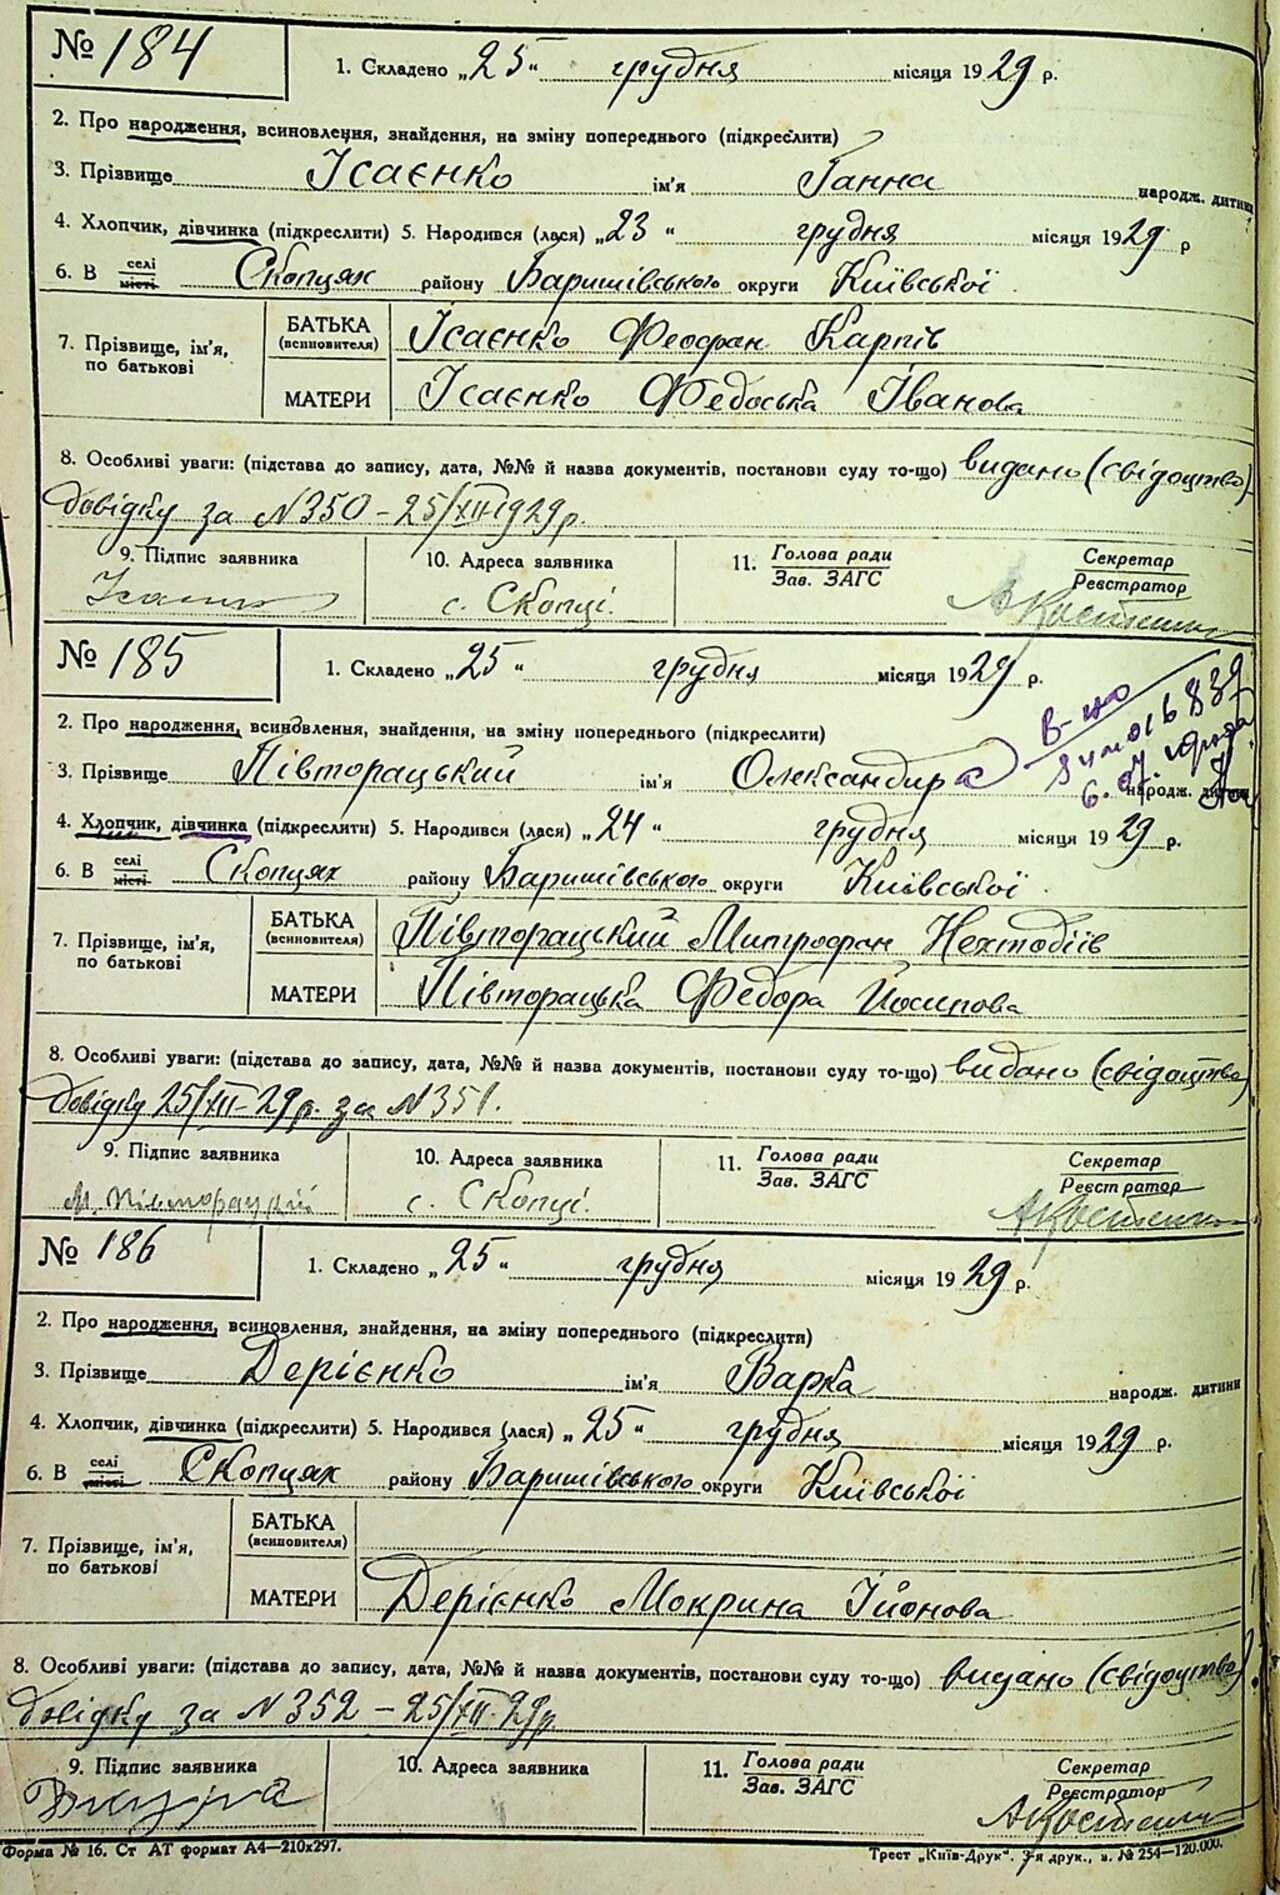 № 184
1. Складено „25“ грудня місяця 1929 р.
2. Про народження, всиновлення, знайдення, на зміну попереднього (підкреслити)
3. Прізвище Ісаєнко ім'я Ганна народж. дитини
4. Хлопчик, дівчинка (підкреслити) 5. Народився (лася) „23“ грудня місяця 1929 р
6. В селі місті Скопцях району Баришівського округи Київської
7. Прізвище, ім'я, по батькові
БАТЬКА (всиновителя) Ісаєнко Феофан Карпів
МАТЕРИ Ісаєнко Федоська Іванова
8. Особливі уваги: (підстава до запису, дата, №№ й назва документів, постанови суду то-що) видано (свідоцтво)
довідку за N 350 – 25/XII–1929 р.
9. Підпис заявника 10. Адреса заявника 11. Голова ради Зав. ЗАГС Секретар Реєстратор
с. Скопці. АКостенко
№ 185
1. Складено „25“ грудня місяця 1929 р.
2. Про народження, всиновлення, знайдення, на зміну попереднього (підкреслити)
3. Прізвище Півторацький ім'я Олександра народж. дитини
4. Хлопчик, дівчинка (підкреслити) 5. Народився (лася) „24“ грудня місяця 1929 р.
6. В селі місті Скопцях району Баришівського округи Київської
7. Прізвище, ім'я, по батькові
БАТЬКА (всиновителя) Півторацький Митрофан Нехтодіїв
МАТЕРИ Півторацька Федора Йосипова
8. Особливі уваги: (підстава до запису, дата, №№ й назва документів, постанови суду то-що) видано (свідоцтво)
довідку 25/XII–29 р. за N 351.
9. Підпис заявника 10. Адреса заявника 11. Голова ради Зав. ЗАГС Секретар Реєстратор
М. Півторацкій с. Скопці. АКостенко
№ 186
1. Складено „25“ грудня місяця 1929 р.
2. Про народження, всиновлення, знайдення, на зміну попереднього (підкреслити)
3. Прізвище Дерієнко ім'я Варка народж. дитини
4. Хлопчик, дівчинка (підкреслити) 5. Народився (лася) „25“ грудня місяця 1929 р.
6. В селі місті Скопцях району Баришівського округи Київської
7. Прізвище, ім'я, по батькові
БАТЬКА (всиновителя)
МАТЕРИ Дерієнко Мокрина Ійонова
8. Особливі уваги: (підстава до запису, дата, №№ й назва документів, постанови суду то-що) видано (свідоцтво)
довідку за N 352 – 25/XII–29 р
9. Підпис заявника 10. Адреса заявника 11. Голова ради Зав. ЗАГС Секретар Реєстратор
АКостенко
Форма № 16. Ст АТ формат А4—210х297. Трест „Київ-Друк“. 3-я друк., з. № 254—120.000.